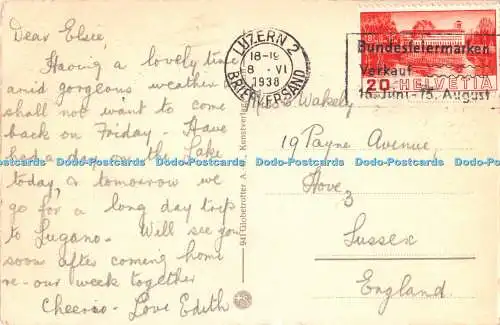 Dear Elsie,
Having a lovely time
amid gorgeous weather
shall not want to come
back on Friday. Have
had a day on the Lake
today & tomorrow we
go for a long day trip
to Lugano. Will see you
soon after coming home
re-our week together
Cheerio - Love Edith
941 Globetrotter A. Kunstverlag
LUZERN 2
18-19
8. VI
1938
BRIEFVERSAND
Bundesfeiermarken
Verkauf
15. Juni - 15. August
20 HELVETIA
Miss E Wakely
19 Payne Avenue,
Hove 3
Sussex
England.
Dodo-Postcards Dodo-Postcards Dodo-Postcards Dodo-Postcards Dodo-Postcards